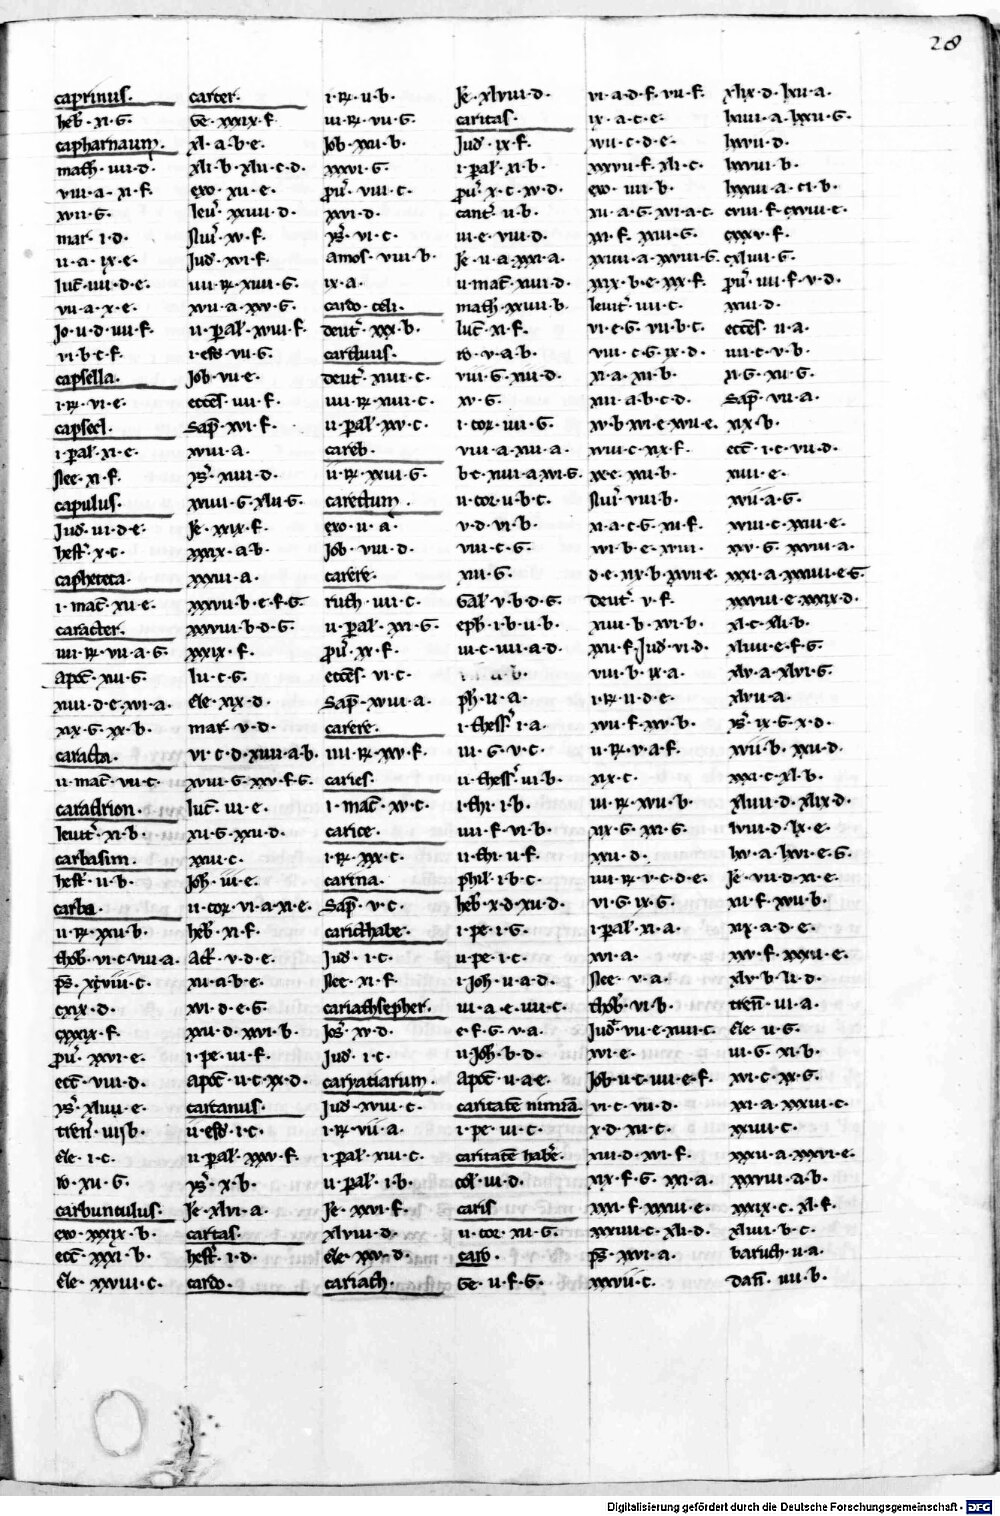 28
caprinus.
heb. xi. G.
capharnaum.
math. iiii. d.
viii. a. xi. f.
xvii. G.
mar. i. d.
ii. a. ix. e.
luc. iiii. d. e.
vii. a. x. e.
Jo. ii. d. iiii. f.
vi. b. c. f.
capsella.
i. R. vi. e.
capseel.
i. pal. xi. e.
Nee. xi. f.
capulus.
Jud. iii. d. e.
hest. x. c.
capheteta.
i. mac. xii. e.
caracter.
iiii. R. vii. a. G.
apoc. xiii. G.
xiiii. d. e. xvi. a.
xix. G. xx. b.
caracta.
ii. mac. vii. c.
caradrion.
leuit. xi. b.
carbasim.
hest. ii. b.
carba.
ii. R. xxii. b.
thob. vi. c. viii. a.
ps. xcviii. c.
cxix. d.
cxxxix. f.
pru. xxvi. e.
ecc. viii. d.
ys. xliiii. e.
tren. iiij b.
eze. i. c.
ro. xii. G.
carbunculus.
exo. xxxix. b.
ecc. xxxi. b.
eze. xxviii. c.
carcer.
Ge. xxxix. f.
xl. a. b. e.
xli. b. xlii. c. d.
exo. xii. e.
leu. xxiiii. d.
Nu. xv. f.
Jud. xvi. f.
iiii. R. xxiii. G.
xvii. a. xxv. G.
ii. pal. xviii. f.
i. esd. vii. G.
Job. vii. e.
ecces. iiii. f.
Sap. xvi. f.
xviii. a.
ys. xiiii. d.
xxiiii. G. xlii. G.
Je. xxix. f.
xxxix. a. b.
xxxiii. a.
xxxvii. b. e. f. G.
xxxviii. b. d. G.
xxxix. f.
lii. c. G.
eze. xix. d.
mar. v. d.
vi. c. d. xiiii. a. b.
xviii. G. xxv. f. G.
luc. iii. e.
xii. G. xxii. d.
xxiii. c.
Joh. iii. e.
ii. cor. vi. a. xi. e.
heb. xi. f.
Act. v. d. e.
xii. a. b. e.
xvi. d. e. G.
xxii. d. xxvi. b.
i. pe. iii. f.
apoc. ii. c. xx. d.
cartanus.
ii. esd. i. c.
ii. pal. xxxv. f.
ys. x. b.
Je. xlvi. a.
cartas.
hest. i. d.
cardo.
i. R. ii. b.
iii. R. vii. G.
Job. xxii. b.
xxxvi. G.
pru. viii. c.
xxvi. d.
ys. vi. c.
amos. viii. b.
ix. a.
cardo. celi.
deut. xxx. b.
carduus.
deut. xiiii. c.
iiii. R. xiiii. c.
ii. pal. xxv. c.
careb.
ii. R. xxiii. G.
carectum.
exo. ii. a.
Job. viii. d.
carere.
ruth. iiii. c.
ii. pal. xxi. G.
pru. xx. f.
ecces. vi. c.
Sap. xviii. a.
carere.
iiii. R. xxv. f.
caries.
i. mac. xv. c.
carice.
i. R. xxx. c.
carina.
Sap. v. c.
caricthabe.
Jud. i. c.
Nee. xi. f.
cariathsepher.
Jos. xv. d.
Jud. i. c.
caryatiarum.
Jud. xviii. c.
i. R. vii. a.
i. pal. xiii. c.
ii. pal. i. b.
Je. xxvi. f.
xlviii. d.
eze. xxv. d.
cariath.
Je. xlviii. d.
caritas.
Jud. ix. f.
i. pal. xi. b.
pru. x. c. xv. d.
cant. ii. b.
iii. e. viii. d.
Je. ii. a. xxxi. a.
ii. mac. xiiii. d.
math. xxiiii. b.
luc. xi. f.
ro. v. a. b.
viii. G. xiii. d.
xv. G.
i. cor. iiii. G.
viii. a. xiii. a.
b. c. xiiii. a. xvi. G.
ii. cor. ii. b. c.
v. d. vi. b.
viii. c. G.
xiii. G.
Gal. v. b. d. G.
eph. i. b. ii. b.
iii. c. iiii. a. d.
ph. ii. a.
i. thess. i. a.
iii. G. v. c.
ii. thess. iii. b.
i. thi. i. b.
iiii. f. vi. b.
ii. thi. ii. f.
phil. i. b. c.
heb. x. d. xii. d.
i. pe. i. G.
ii. pe. i. c.
i. Joh. ii. a. d.
iii. a. e. iiii. c.
e. f. G. v. a.
ii. Joh. b. d.
apoc. ii. a. e.
caritate nimia.
i. pe. iii. c.
caritate habe.
col. iii. d.
caris
ii. cor. xii. G.
caro.
Ge. ii. f. G.
vi. a. d. f. vii. f.
ix. a. c. e.
xvii. c. d. e.
xxxvii. f. xli. c.
exo. iiii. b.
xii. a. G. xvi. a. c.
xxi. f. xxiii. G.
xxiiii. a. xxviii. G.
xxix. b. e. xxx. f.
leuit. iiii. c.
vi. e. G. vii. b. c.
viii. c. G. ix. d.
xi. a. xii. b.
xiii. a. b. c. d.
xv. b. xvi. e. xvii. e.
xviii. c. xix. f.
xx. e. xxii. b.
Nu. viii. b.
xi. a. c. G. xii. f.
xvi. b. e. xviii.
d. e. xix. b. xxvii. e.
deut. v. f.
xiiii. b. xvi. b.
xxii. f. Jud. vi. d.
viii. b. ix. a.
i. R. ii. d. e.
xvii. f. xxv. b.
ii. R. v. a. f.
xix. c.
iii. R. xvii. b.
xix. G. xxi. G.
xxii. d.
iiii. R. v. c. d. e.
vi. G. ix. G.
i. pal. xi. a.
xvi. a.
Nee. v. a.
thob. vi. b.
Jud. vii. e. xiiii. c.
xvi. e.
Job. ii. c. iiii. e. f.
vi. c. vii. d.
x. d. xii. c.
xiii. d. xvi. f.
xix. f. G. xxi. a.
xxxi. f. xxxiii. e.
xxxiiii. c. xli. d.
ps. xxvi. a.
xxxvii. c.
xlix. d. lxii. a.
lxiii. a. lxxii. G.
lxxvii. d.
lxxviii. b.
lxxxiii. a. ci. b.
cviii. f. cxviii. c.
cxxv. f.
cxliiii. G.
pru. iiii. f. v. d.
xxiii. d.
ecces. ii. a.
iiii. c. v. b.
xi. G. xii. G.
Sap. vii. a.
xix. b.
ecc. i. c. vii. d.
xiiii. e.
xvii. a. G.
xviii. c. xxiii. e.
xxv. G. xxviii. a.
xxxi. a. xxxiiii. e. G.
xxxviii. e. xxxix. d.
xl. c. xli. b.
xliiii. e. f. G.
xlv. a. xlvi. G.
xlvii. a.
ys. ix. G. x. d.
xvii. b. xxii. d.
xxxi. c. xl. b.
xliiii. d. xlix. d.
lviii. d. lx. e.
lxv. a. lxvi. e. G.
Je. vii. d. xi. e.
xii. f. xvii. b.
xix. a. d. e.
xxv. f. xxxii. e.
xlv. b. li. d.
tren. iii. a.
eze. ii. G.
iii. G. xi. b.
xvi. c. xx. G.
xxi. a. xxiii. c.
xxiiii. c.
xxxii. a. xxxvi. e.
xxxvii. a. b.
xxxix. c. xl. f.
xliiii. b. c.
baruch. ii. a.
dan. iiii. b.
Digitalisierung gefördert durch die Deutsche Forschungsgemeinschaft - DFG